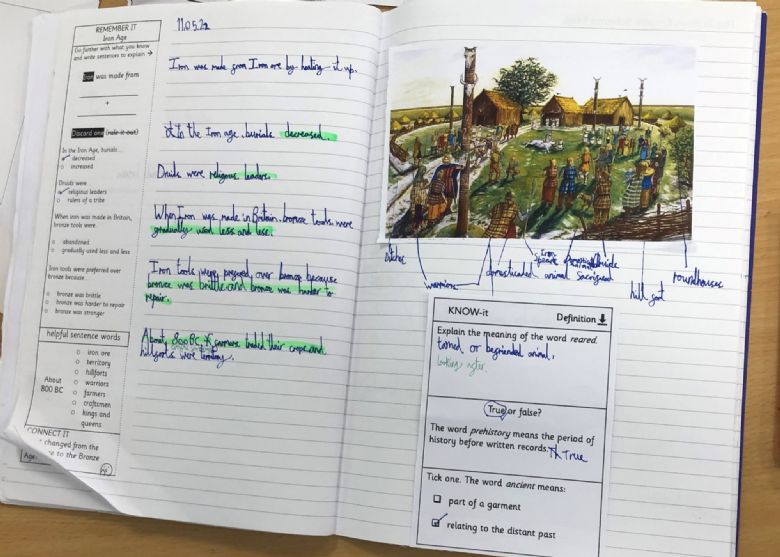 REMEMBER IT
Iron Age
Go further with what you know
and write sentences to explain →
Iron was made from
+
Discard one (rule it out)
In the Iron Age, burials ...
decreased
increased
Druids were ...
religious leaders
rulers of a tribe
When iron was made in Britain,
bronze tools were:
abandoned
gradually used less and less
Iron tools were preferred over
bronze because
bronze was brittle
bronze was harder to repair
bronze was stronger
helpful sentence words
About
800 BC
iron ore
territory
hillforts
warriors
farmers
craftsmen
kings and
queens
CONNECT IT
changed from the
Age to the Bronze
11.05.22
Iron was made from Iron ore by heating it up.
In the Iron age, burials decreased.
Druids were religious leaders.
When Iron was made in Britain, bronze tools were
gradually used less and less.
Iron tools were over bronze because
bronze was brittle and bronze was harder to
repair.
About 800 BC farmers traded their crops and
hillforts were
warriors
domesticated animal
hill fort
roundhouses
KNOW-it
Definition
Explain the meaning of the word reared.
tamed or befriended animal.
looking after.
True or false?
The word prehistory means the period of
history before written records. True
Tick one. The word ancient means:
part of a garment
relating to the distant past